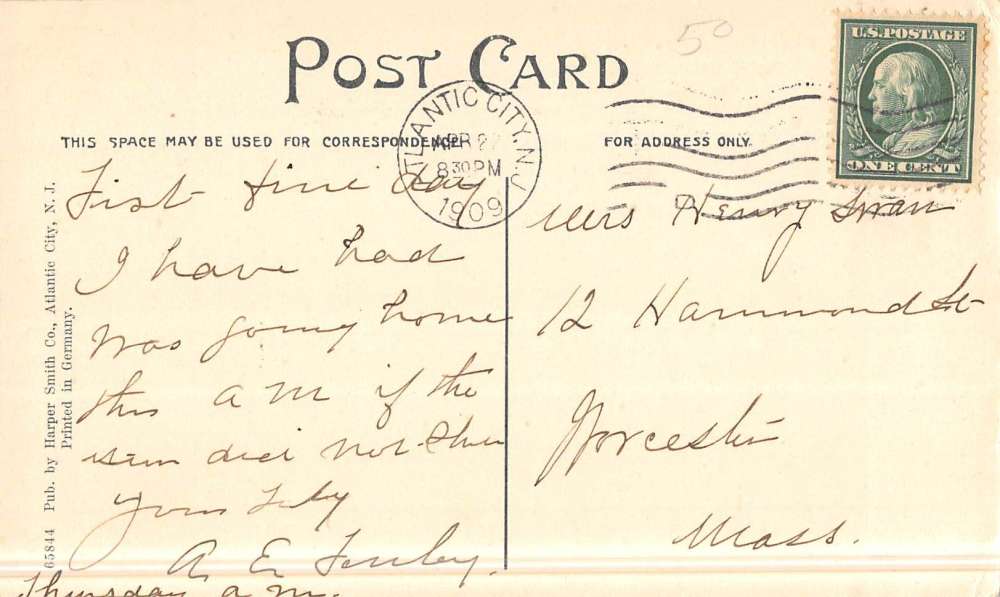 50
POST CARD
U.S. POSTAGE
ONE CENT
ATLANTIC CITY, N.J.
APR 22
830 PM
1909
THIS SPACE MAY BE USED FOR CORRESPONDENCE
FOR ADDRESS ONLY.
First fine day
I have had
was going home
this a m if the
sun did not shine
Yours Truly
A. E.
Thursday a.m.
Mrs Henry Swan
12 Hammond St
Worcester
Mass.
65844 Pub. by Harper Smith Co., Atlantic City, N. J.
Printed in Germany.